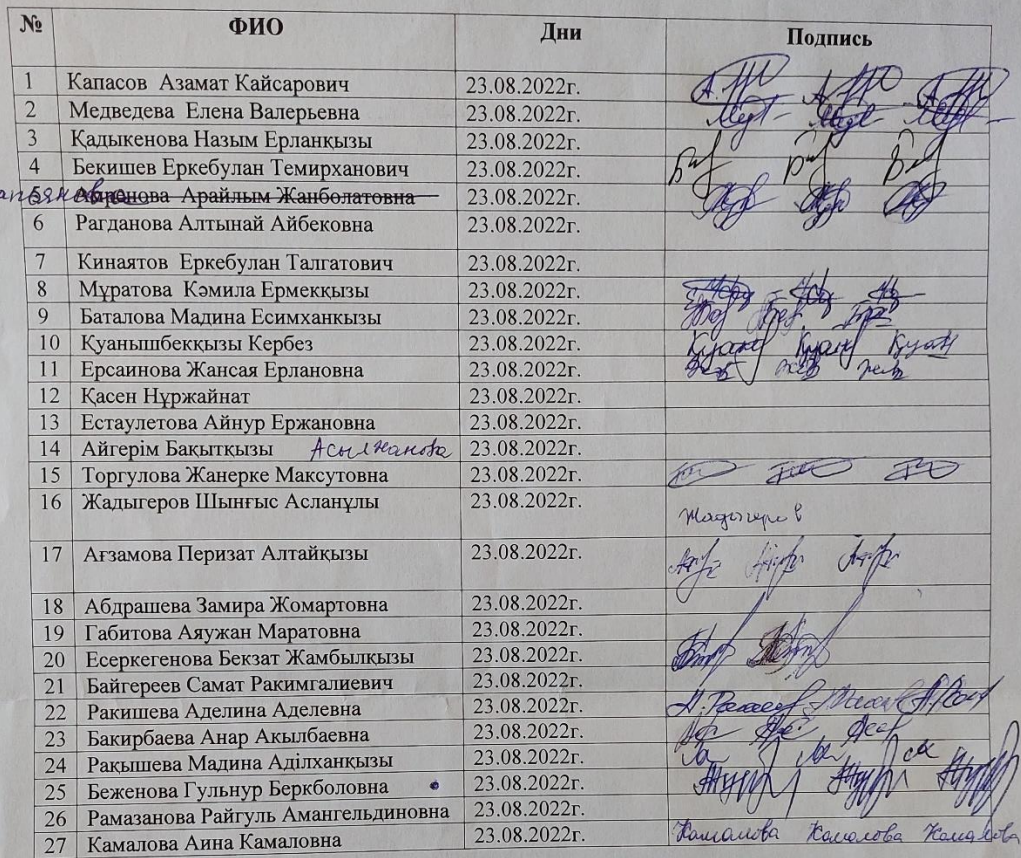 № ФИО Дни Подпись
1 Капасов Азамат Кайсарович 23.08.2022г.
2 Медведева Елена Валерьевна 23.08.2022г.
3 Қадыкенова Назым Ерланқызы 23.08.2022г.
4 Бекишев Еркебулан Темирханович 23.08.2022г.
5 Арайлым Жанболатовна 23.08.2022г.
6 Рагданова Алтынай Айбековна 23.08.2022г.
7 Кинаятов Еркебулан Талгатович 23.08.2022г.
8 Мұратова Кәмила Ермекқызы 23.08.2022г.
9 Баталова Мадина Есимханкызы 23.08.2022г.
10 Қуанышбекқызы Кербез 23.08.2022г. Қуан Қуан Қуан
11 Ерсаинова Жансая Ерлановна 23.08.2022г.
12 Қасен Нұржайнат 23.08.2022г.
13 Естаулетова Айнур Ержановна 23.08.2022г.
14 Айгерім Бақытқызы Асылжанова 23.08.2022г.
15 Торгулова Жанерке Максутовна 23.08.2022г.
16 Жадыгеров Шынғыс Асланұлы 23.08.2022г. Жадыгеров
17 Ағзамова Перизат Алтайқызы 23.08.2022г.
18 Абдрашева Замира Жомартовна 23.08.2022г.
19 Габитова Аяужан Маратовна 23.08.2022г.
20 Есеркегенова Бекзат Жамбылқызы 23.08.2022г.
21 Байгереев Самат Ракимгалиевич 23.08.2022г.
22 Ракишева Аделина Аделевна 23.08.2022г.
23 Бакирбаева Анар Акылбаевна 23.08.2022г.
24 Рақышева Мадина Аділханқызы 23.08.2022г.
25 Беженова Гульнур Беркболовна 23.08.2022г.
26 Рамазанова Райгуль Амангельдиновна 23.08.2022г.
27 Камалова Аина Камаловна 23.08.2022г. Камалова Камалова Камалова